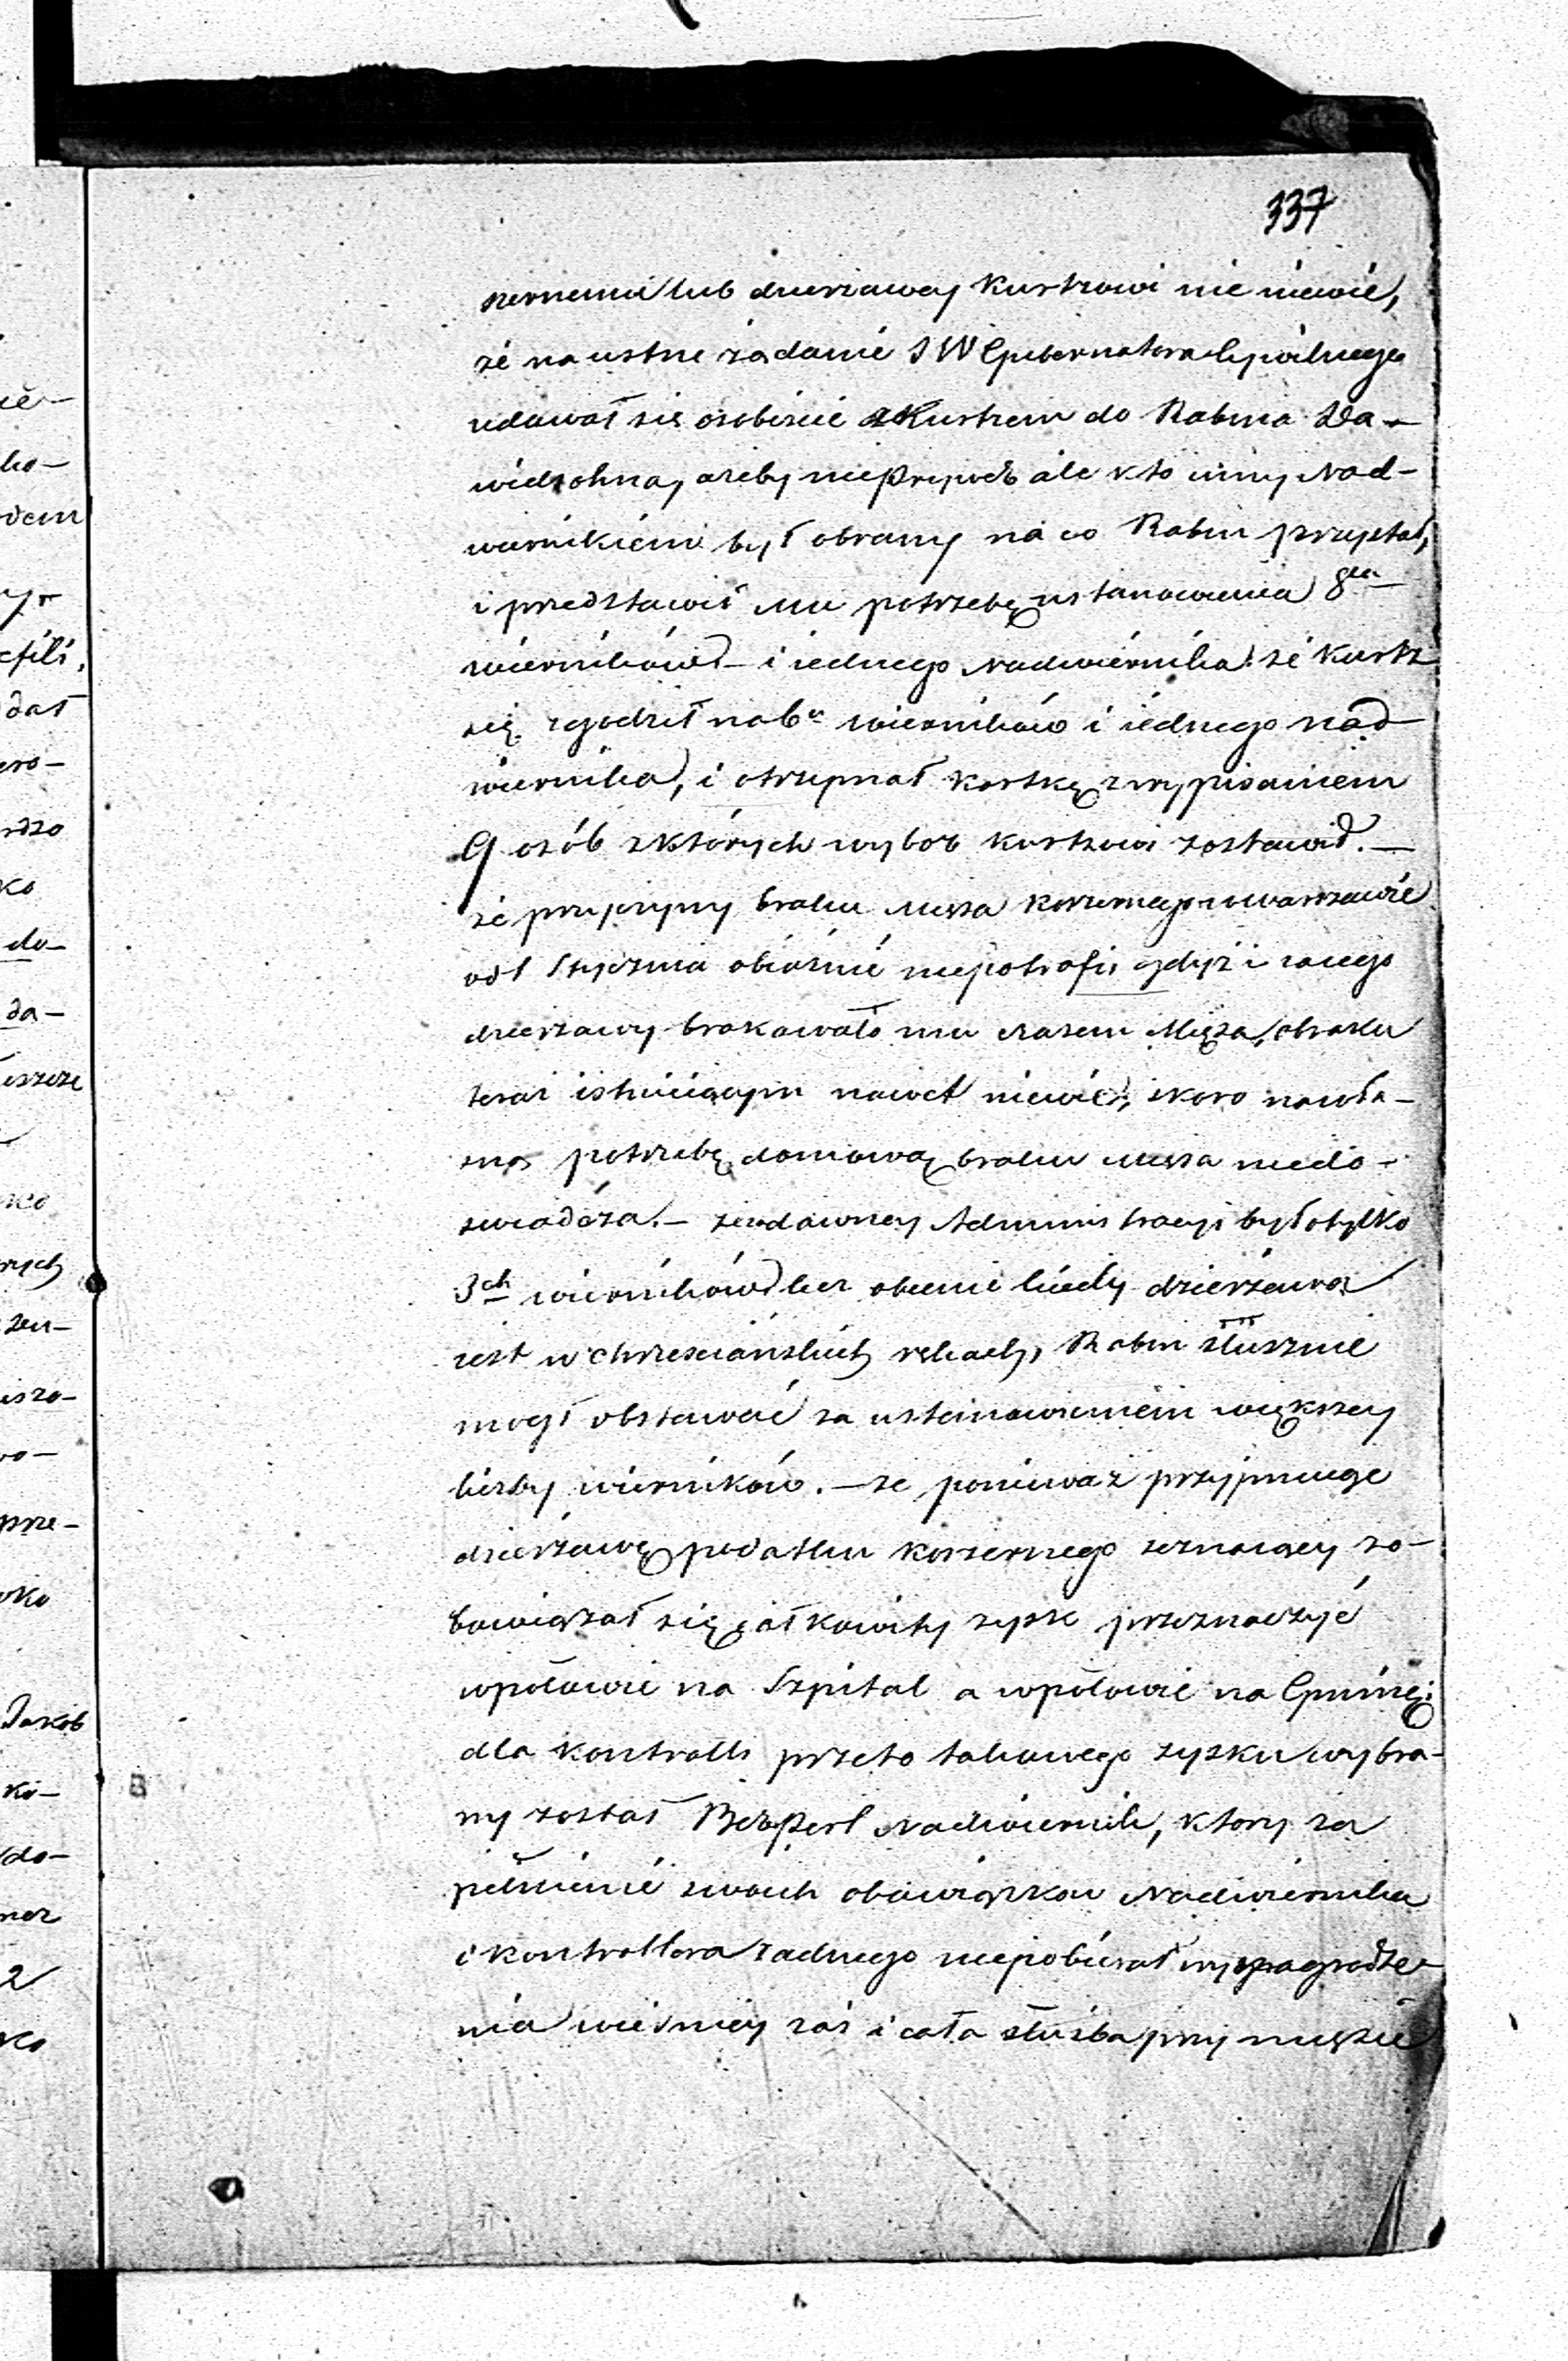 337
szernemu lub dzierzawcy Kurtzowi nie niewié,
zé na ustne żadanié JW Gubernatora Cywilnego
udawał się osobiscié z Kurtzem do Rabina Da-
widsohna, azeby nie Prywes ale kto inny Nad-
wiernikiém był obrany na co Rabin przystał,
i przedstawił mu potrzebę ustanowienia 8u
wierników – i iednego Nadwiérnika. zé Kurtz
się zgodził na 6u wierników i iednego nad
wiernika, i otrzymał kartkę z wypisaniem
9 osób z których wybor Kurtzowi zostawił. –
zé przyczyny braku mięsa koszernego w warszawié
od 1 Stycznia obiaśnić niepotrafi gdyż i za iego
dzierzawy brakowało mu czasem Mięsa, o braku
teraz istnieiącym nawet niewié, skoro na wła-
sną potrzebę domową braku mięsa niedo-
swiadcza. – ze za dawney Administracyi było tylko
3ch wierników lecz obecnie kiedy dzierżawa
iest w chrzesciańskich rękach, Rabin słusznie
mogł obstawać za ustanowieniem większey
liczby wierników. – ze poniewaz przyjmuiąc
dzierżawę podatku koszernego zeznaiący zo-
bowiązał się całkowity zysk przeznaczyć
w połowie na Szpital a w połowie na Gminę;
dla kontrolli przeto takowego zysku wybra-
ny został Ber Perl Nadwiernik, ktory za
pełnienié swoich obowiązkow Nadwiernika
i kontrollora zadnego niepobierał wynagrodze-
nia wiernicy zaś i cała służba przy mięsie